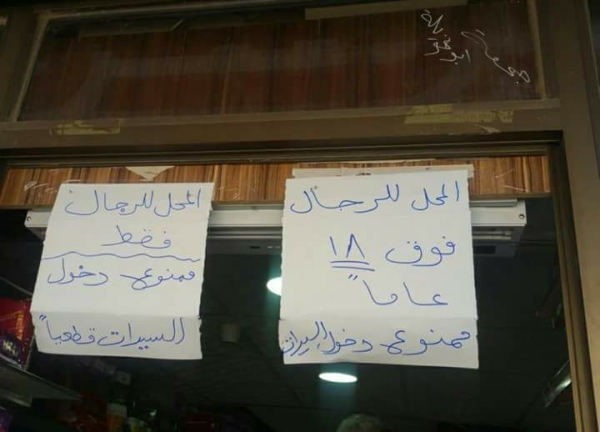 المحل للرجال
فوق ١٨
عاماً
ممنوع دخول السيدات
المحل للرجال
فقط
ممنوع دخول
السيدات قطعياً